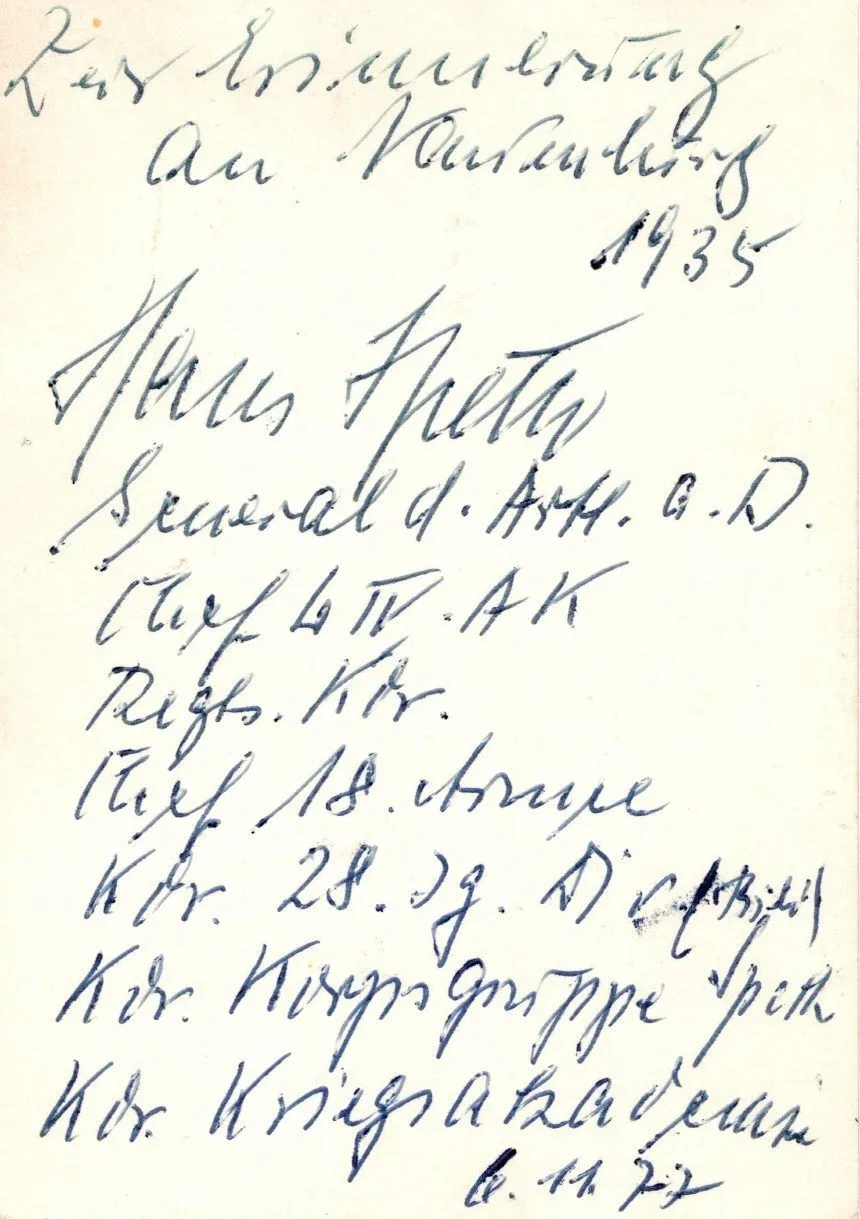 Zur Erinnerung
an Naumburg
1935
Hans Speth
General d. Art. a. D.
Chef IV. AK
Regts. Kdr.
Chef 18. Armee
Kdr. 28. Jg. Div
Kdr. Korpsgruppe Speth
Kdr. Kriegsakademie
6. 11. 77